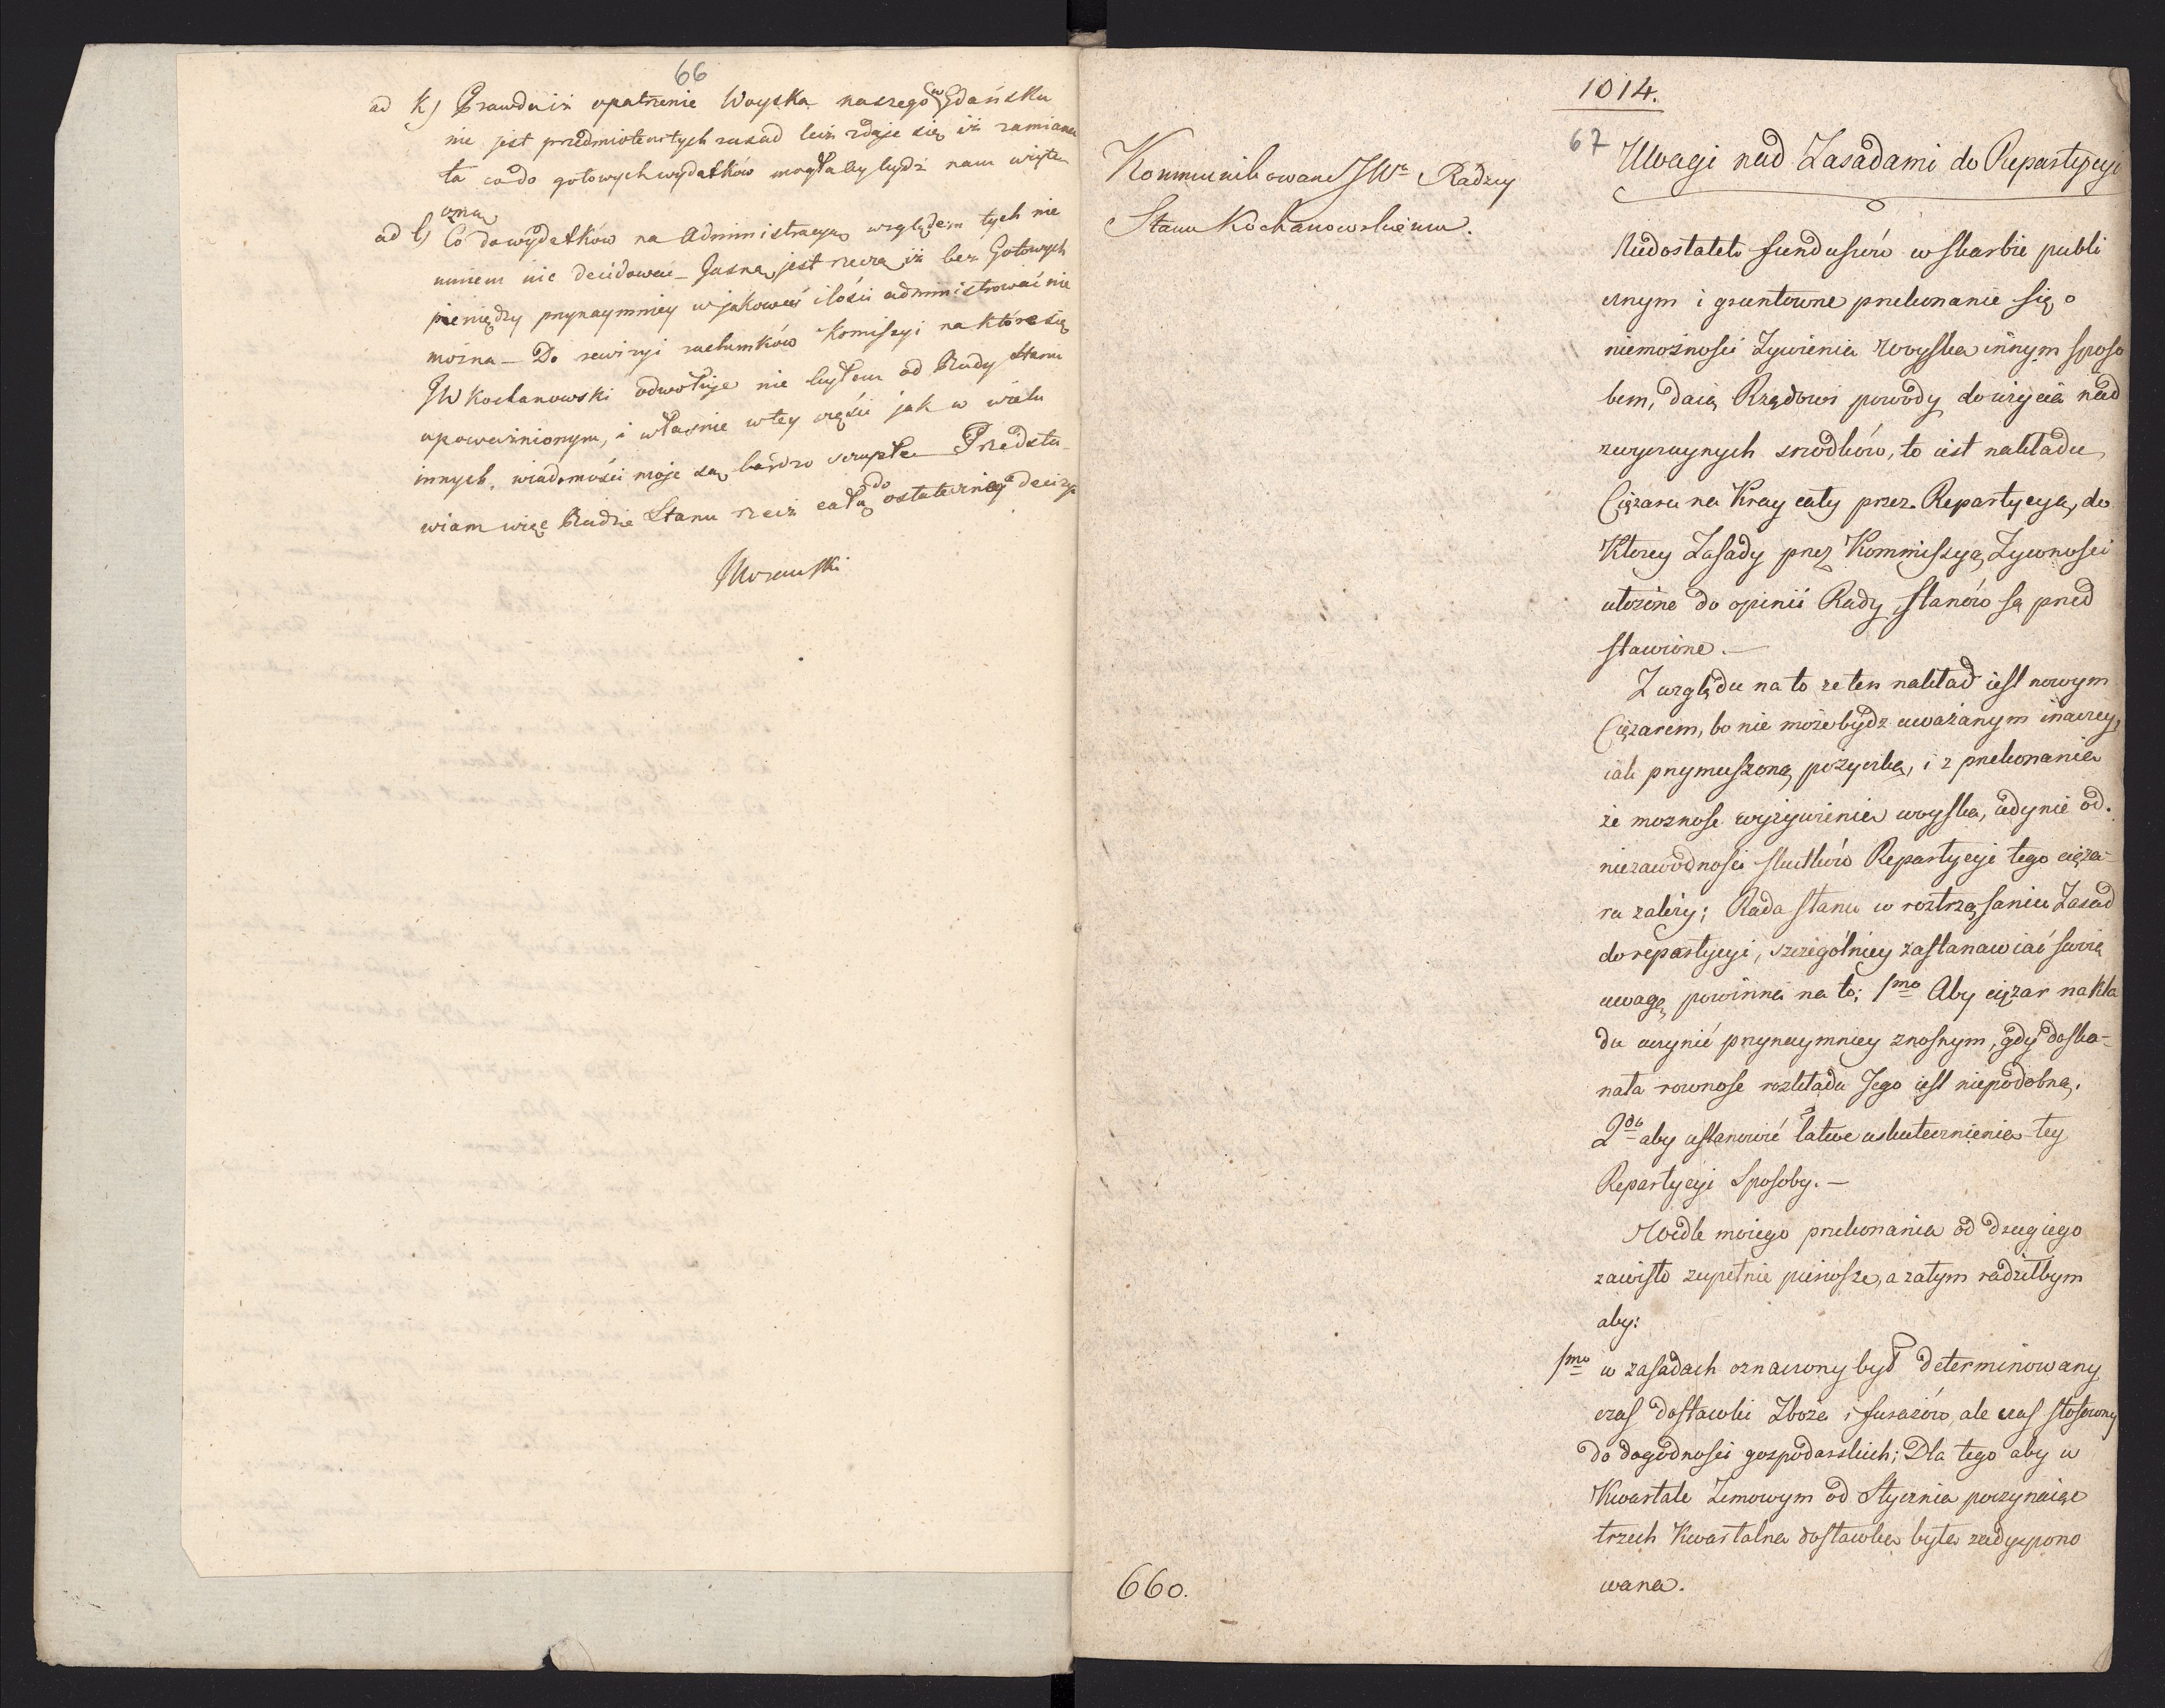 66
ad k) Prawda iż opatrzenie Woyska naszego w Gdańsku
nie jest przedmiotem tych zasad lecz zdaje się iż zamiana
ta co do gotowych wydatków mogłaby bydź nam użyte
czna
ad l) Co do wydatków na Administracyą względem tych nie
umiem nic decidować – Jasna jest rzecz iż bez Gotowych
pieniędzy przynaymniey w jakoweś ilości administrować nie
można – Do rewizyi rachunków Komiszyi na które się
JW Kochanowski odwołuje nie byłem od Rady Stanu
upoważnionym, i właśnie w tey części jak w wielu
innych, wiadomości moje są bardzo szczupłe Przedsta
wiam więc Radzie Stanu rzecz całą do ostateczney decizyi
Morawski
1014.
67 Uwagi nad Zasadami do Repartycyi
Kommunikowane JWu Radzcy
Stanu Kochanowskiemu.
Niedostatek funduszów w skarbie publi
cznym i gruntowne przekonanie się o
niemożności Żywienia Woyska innym sposo
bem, daią Rządowi powody do użycia nad
zwyczaynych srodków, to iest nakładu
Ciężaru na Kray cały przez Repartycyą, do
Ktorey Zasady przez Kommissyą Żywności
ułożone do opinii Rady Stanów są przed
stawione. –
Z względu na to że ten nakład iest nowym
Ciężarem, bo nie może bydz uważanym inaczey,
iak przymuszoną pożyczką, i z przekonania
że możnosc wyżywienia woyska, iedynie od
niezawodnosci skutków Repartycyi tego cięża-
ru zależy; Rada Stanu w roztrząsaniu Zasad
do repartycyi, szczególniey zastanawiać swoią
uwagę powinna na to; 1mo Aby ciężar nakła
du uczynić przynaymniey znosnym, gdy dosko-
nała rownosc rozkładu Jego iest niepodobna.
2do aby ustanowić łatwe uskutecznienia tey
Repartycyi Sposoby. –
Wedle moiego przekonania od drugiego
zawisło zupełnie pierwsze, a zatym radziłbym
aby:
1mo w zasadach oznaczony był determinowany
czas dostawki Zboża i furażów, ale czas stosowny
do dogodności gospodarskich; Dla tego aby w
Kwartale Zimowym od Stycznia poczynaiąc
trzech Kwartalna dostawka była zadyspono
wana.
660.